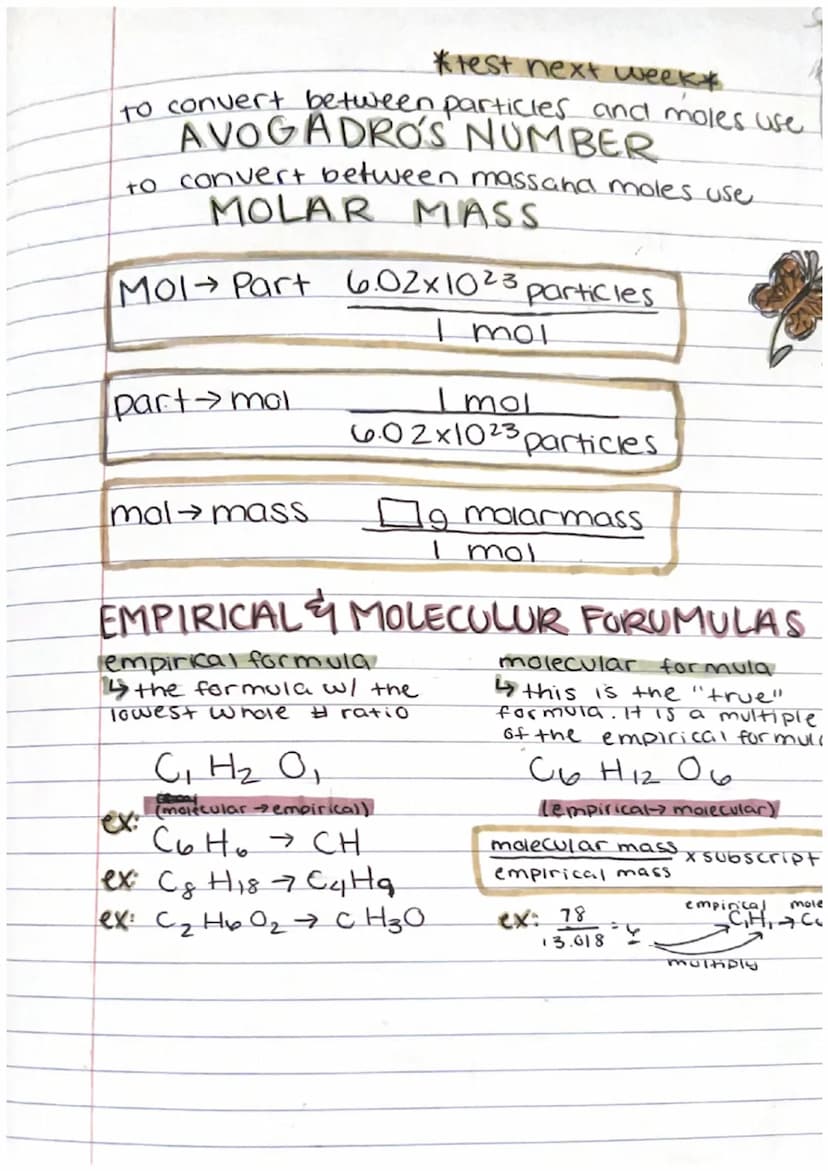 *test next week*
to convert between particles and moles use
AVOGADRO'S NUMBER
to convert between mass and moles use
MOLAR MASS
Mol → Part 6.02x10²³ particles
1 mol
part → mol 1 mol
6.02x10²³ particles
mol → mass □g molar mass
1 mol
EMPIRICAL & MOLECULUR FORUMULAS
empirical formula
↳ the formula w/ the
lowest whole # ratio
C₁ H₂ O₁
(molecular → empirical)
ex:
C₆ H₆ → CH
ex: C₈ H₁₈ → C₄H₉
ex: C₂ H₆ O₂ → C H₃O
molecular formula
↳ this is the "true"
formula. It is a multiple
of the empirical formul
C₆ H₁₂ O₆
(empirical → molecular)
molecular mass x subscript
empirical mass
empirical mole
ex: 78 = C₁H₁ → C₆
13.018
multiply